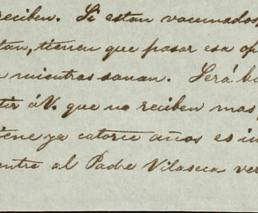 reciben. Si estan vacunados,
tan, tienen que pasar esa op
mientras sanan. Será b
tir á V. que no reciben mas
iene ya catorce años es in
entre al Padre Vilaseca ver